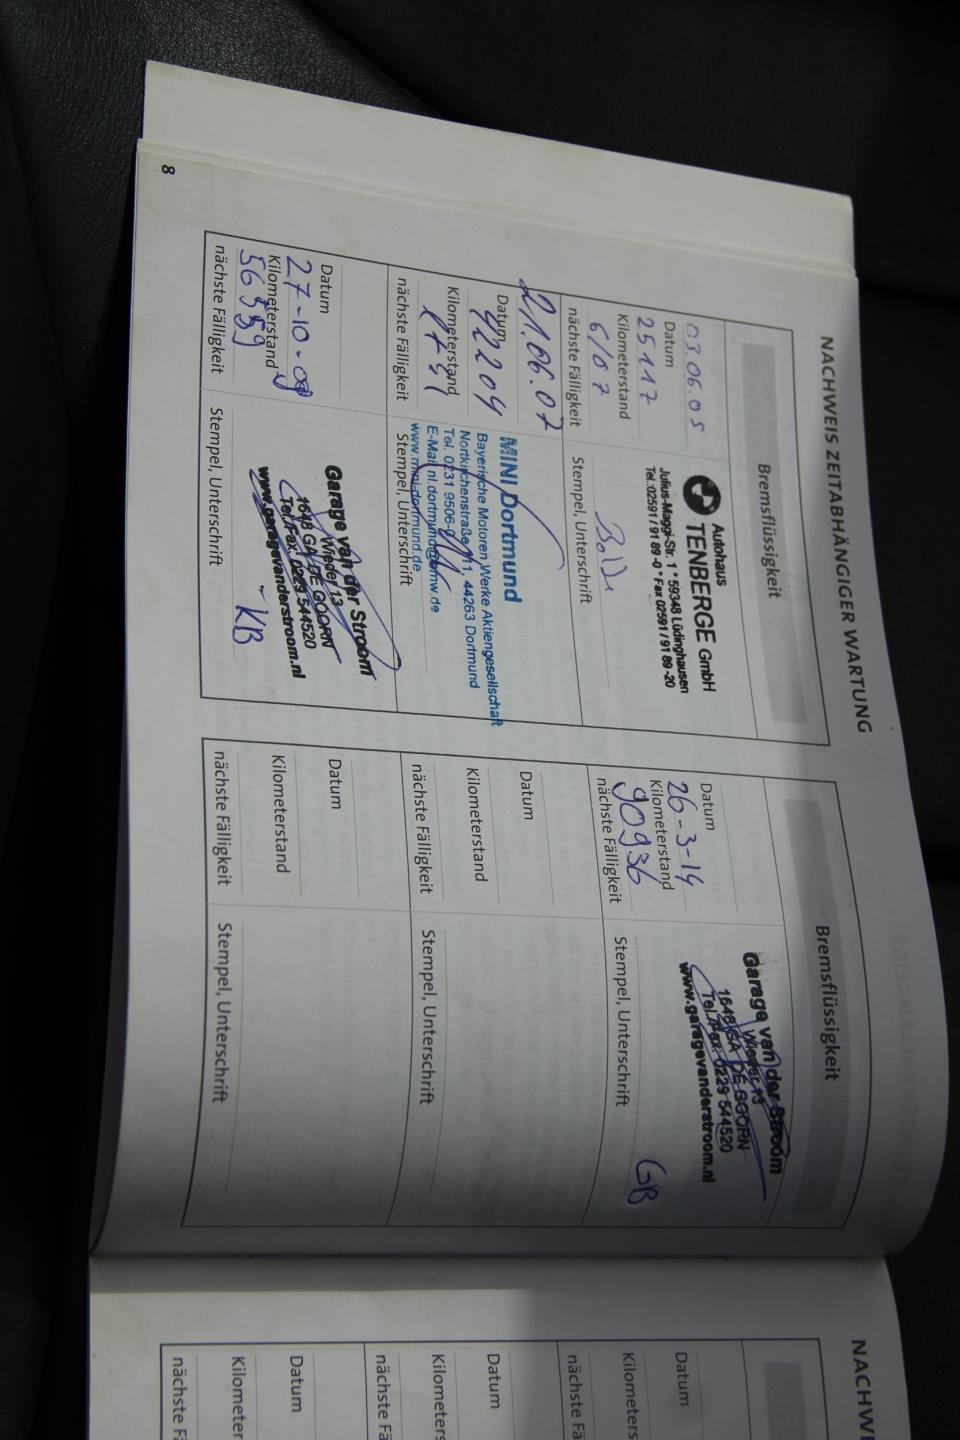 NACHWEIS ZEITABHÄNGIGER WARTUNG
Bremsflüssigkeit
03.06.05
Datum
25117
Kilometerstand
6/07
nächste Fälligkeit
Autohaus
TENBERGE GmbH
Julius-Maggi-Str. 1 * 59348 Lüdinghausen
Tel.:02591 / 91 89 -0 * Fax 02591 / 91 89 -20
Stempel, Unterschrift
21.06.07
Datum
42209
Kilometerstand
nächste Fälligkeit
MINI Dortmund
Bayerische Motoren Werke Aktiengesellschaft
Nortkirchenstraße 111, 44263 Dortmund
Tel. 0231 9506-0
E-Mail nl.dortmund@bmw.de
www.mini-dortmund.de
Stempel, Unterschrift
Datum
27-10-09
Kilometerstand
56559
nächste Fälligkeit
Garage van der Stroom
Wieder 13
1648 GA DE GOORN
Tel./Fax: 0229 544520
www.garagevanderstroom.nl
- KB
Stempel, Unterschrift
Bremsflüssigkeit
Datum
26-3-14
Kilometerstand
90936
nächste Fälligkeit
Garage van der Stroom
Wieder 13
1648 GA DE GOORN
Tel./Fax: 0229 544520
www.garagevanderstroom.nl
GB
Stempel, Unterschrift
Datum
Kilometerstand
nächste Fälligkeit
Stempel, Unterschrift
Datum
Kilometerstand
nächste Fälligkeit
Stempel, Unterschrift
8
NACHWE
Datum
Kilometers
nächste Fä
Datum
Kilometers
nächste Fä
Datum
Kilometer
nächste Fä